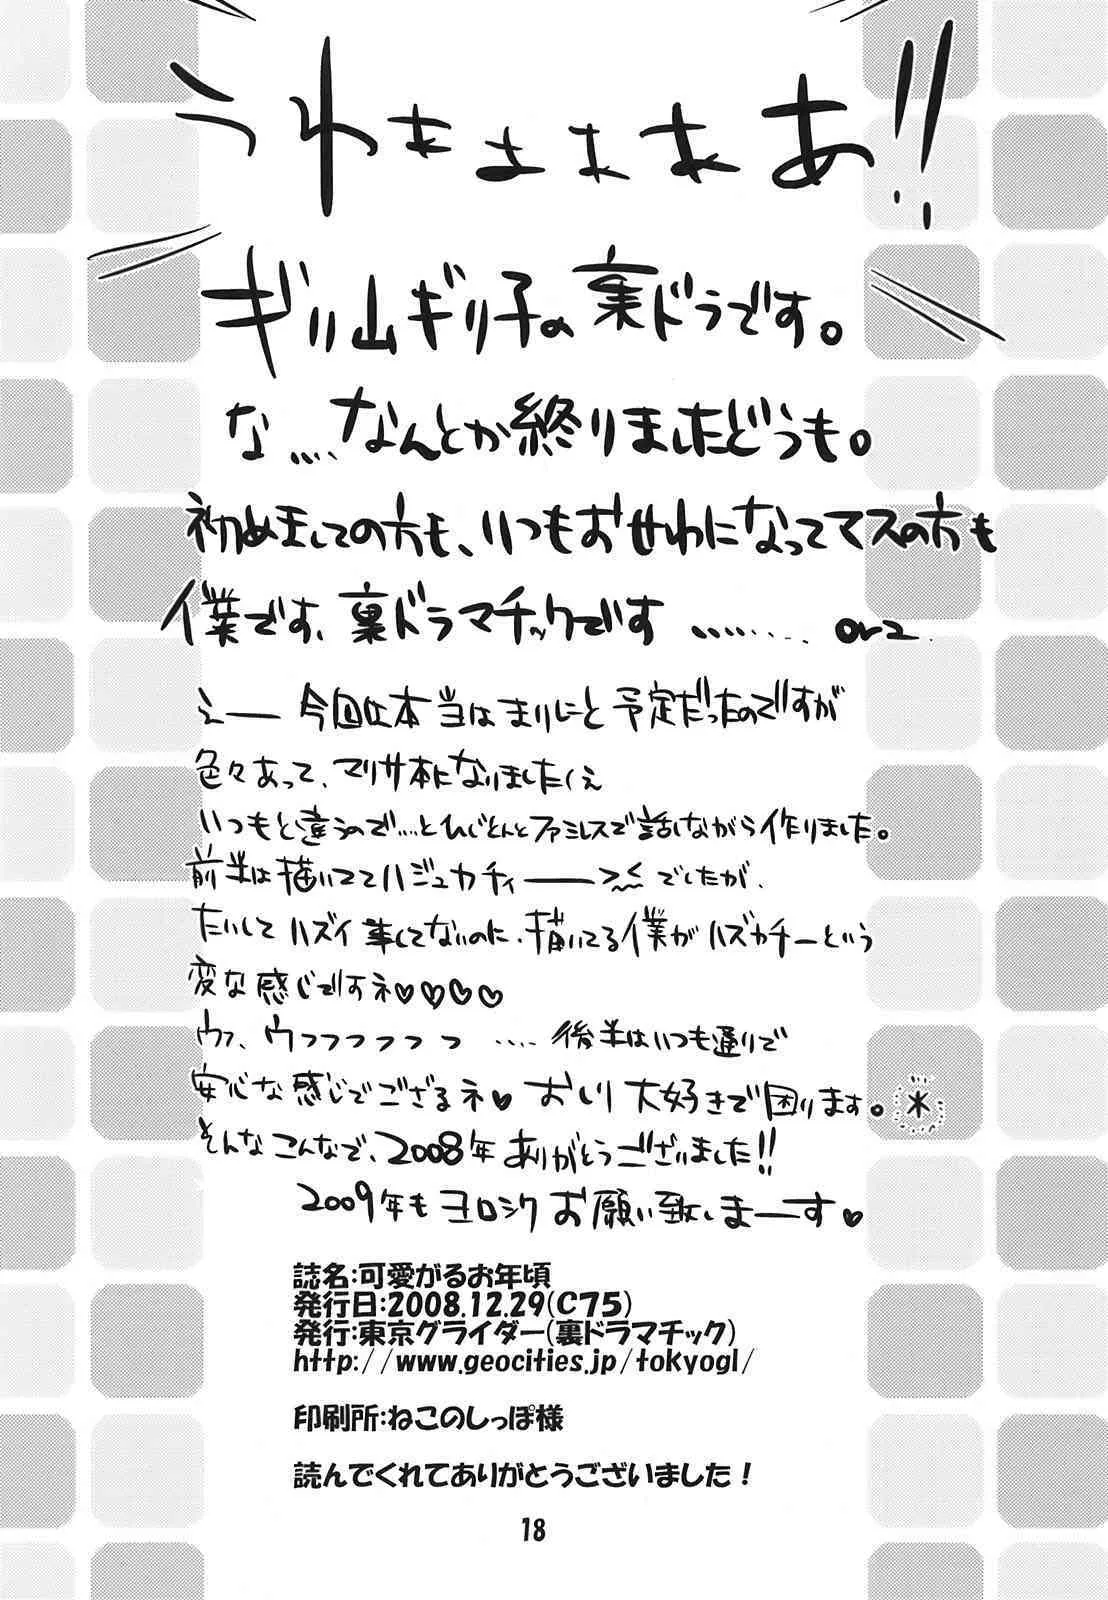 うわぁぁぁぁあ!!
ギリ山ギリ子の裏ドラです。
な....なんとか終りましたどうも。
初めましての方も、いつもおせわになってマスの方も
僕です、裏ドラマチックです......... orz
えー 今回は本当はまりにと予定だったのですが
色々あって、マリサ本になりました(え
いつもと違うので....とひじとんとファミレスで話しながら作りました。
前半は描いててハジュカチィーーでしたが、
たいしてハズイ事してないのに、描いてる僕がハズカチーという
変な感じですネ♡♡♡♡
ウフ、ウフフフフフフ .... 後半はいつも通りで
安心な感じでござるネ♡ おしり大好きで困ります。
そんなこんなで、2008年ありがとうございました!!
2009年もヨロシクお願い致しまーす♡
誌名:可愛がるお年頃
発行日:2008.12.29(C75)
発行:東京グライダー(裏ドラマチック)
http://www.geocities.jp/tokyogl/
印刷所:ねこのしっぽ様
読んでくれてありがとうございました!
18